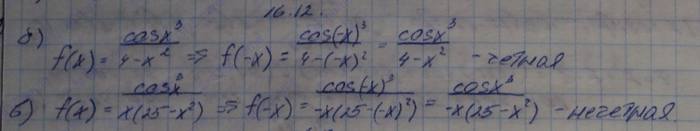 16.12.
б) f(x) = cosx³/4-x² => f(-x) = cos(-x)³/4-(-x)² = cosx³/4-x² - четная
в) f(x) = cosx³/x(25-x²) => f(-x) = cos(-x)³/-x(25-(-x)²) = cosx³/-x(25-x²) - нечетная.